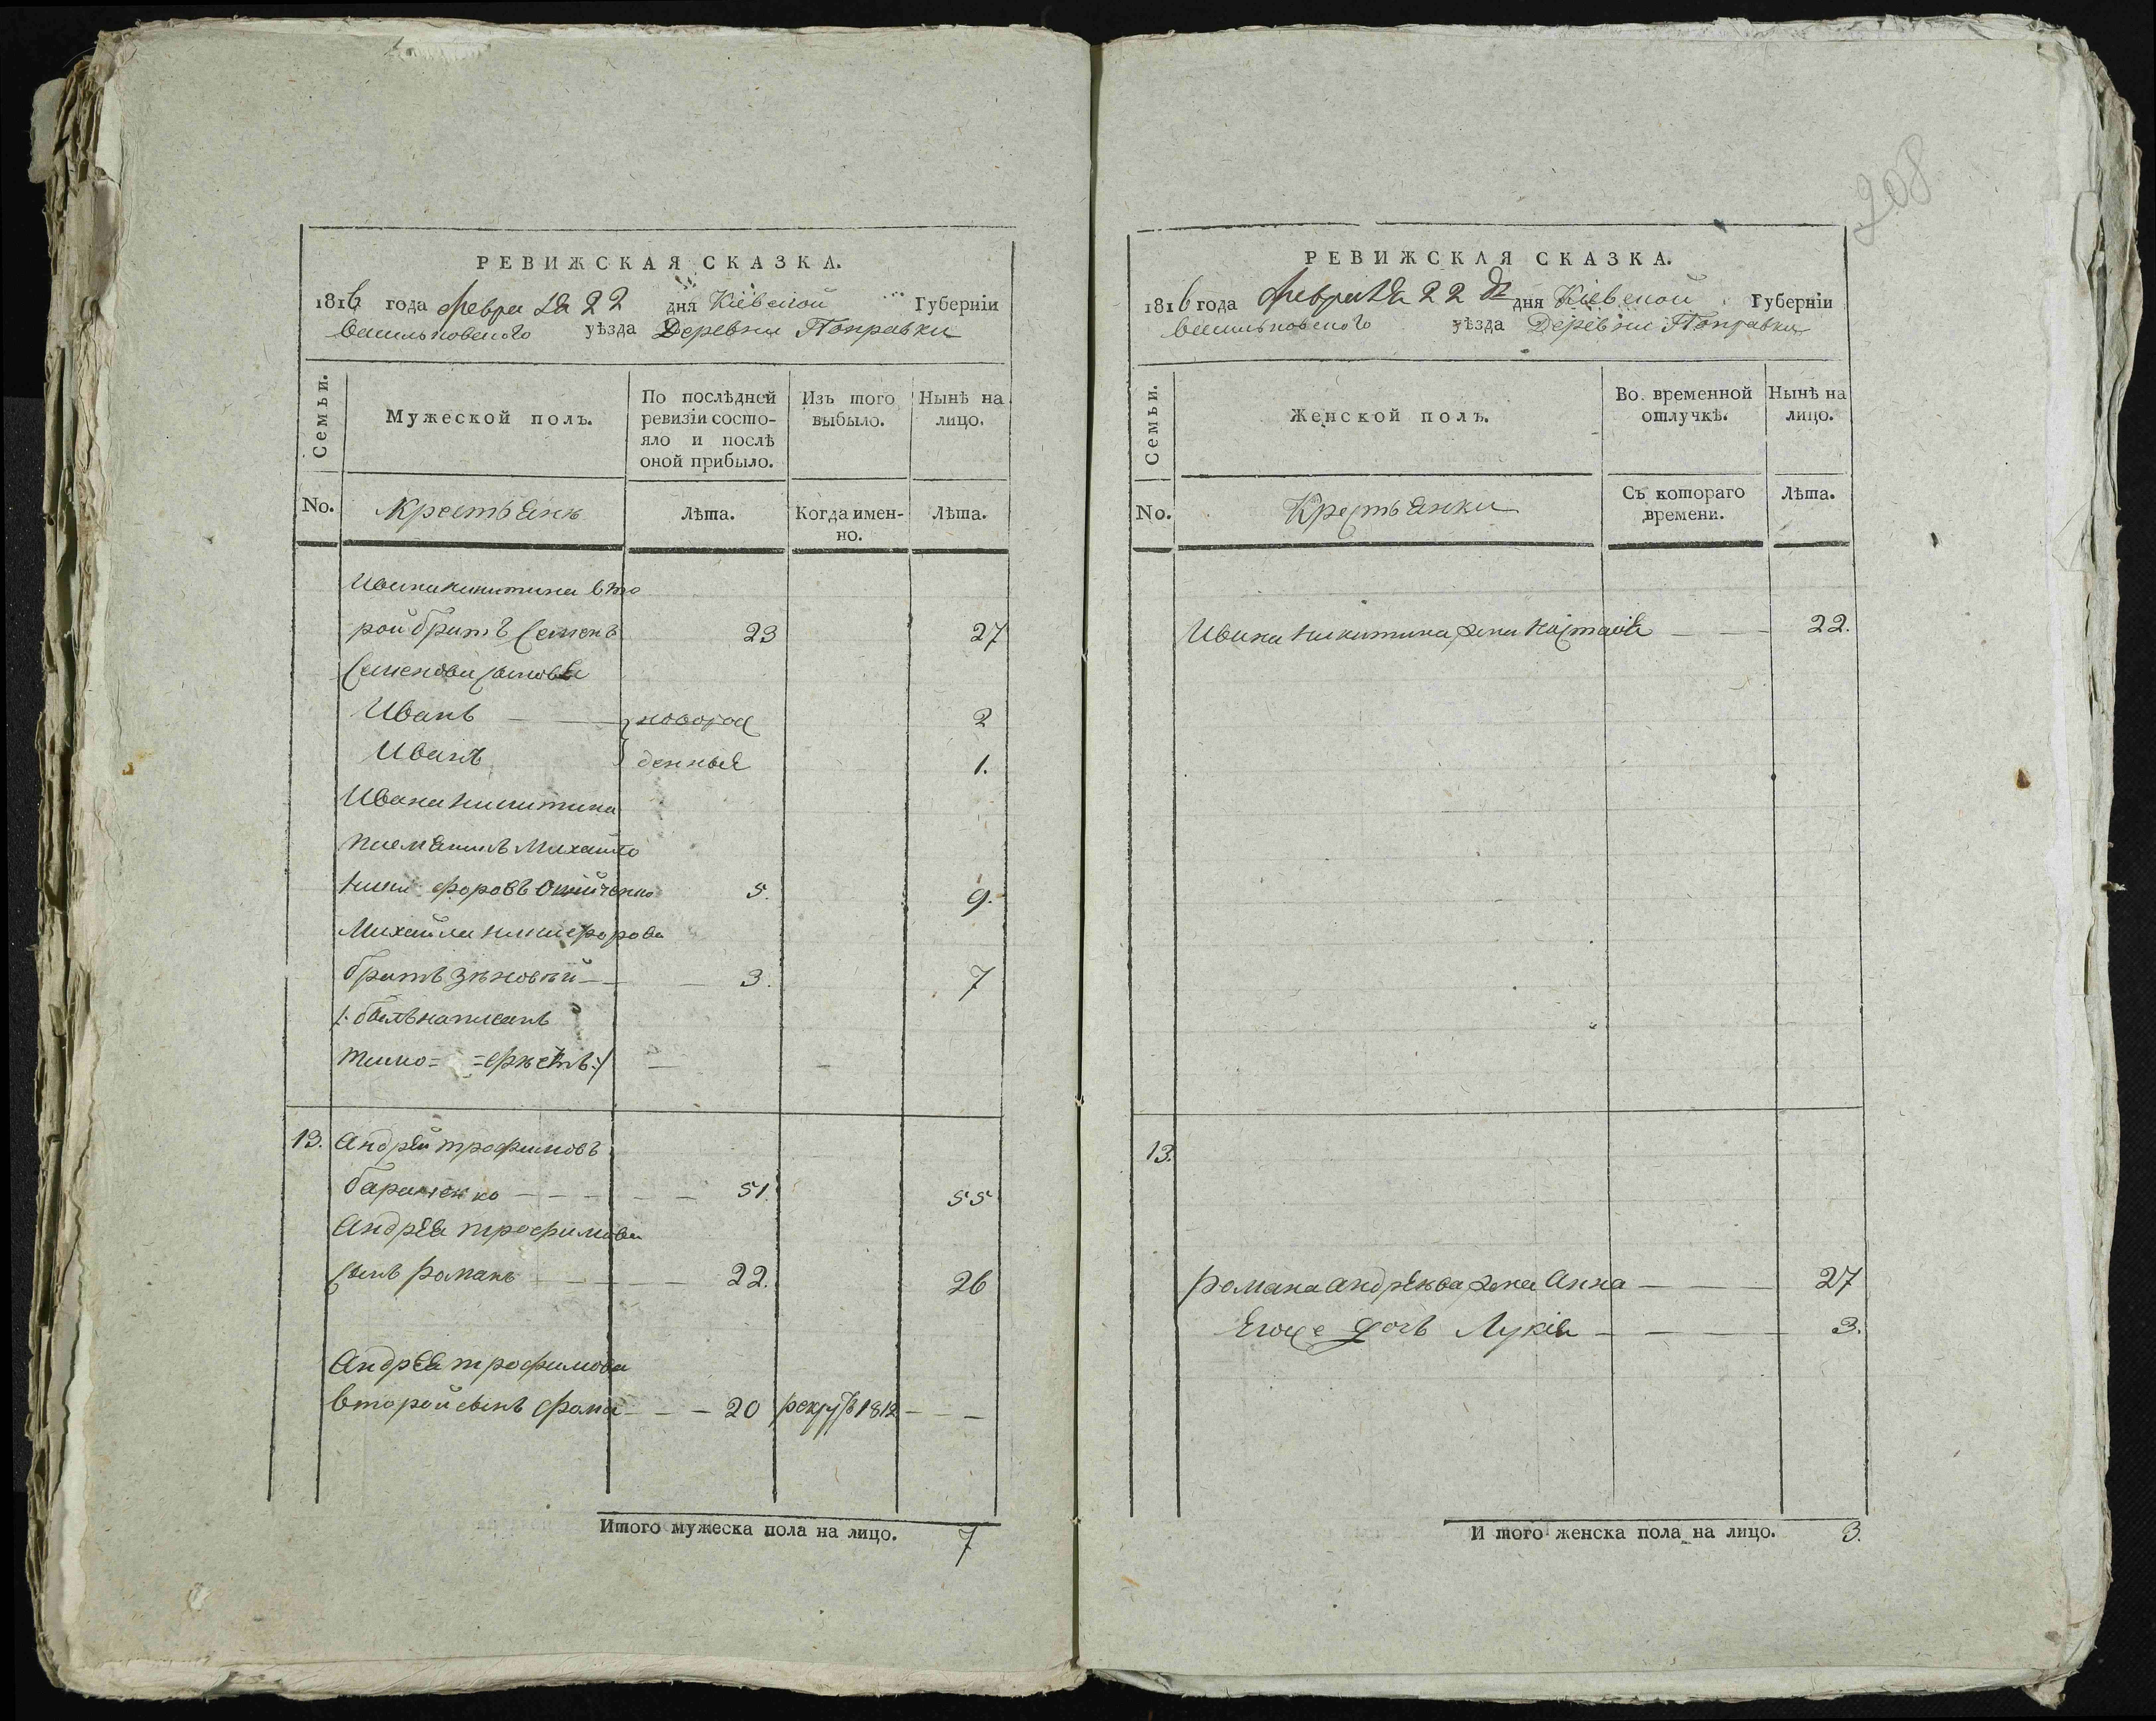 РЕВИЖСКАЯ СКАЗКА.
1816 года февраля 22 дня Кіевской Губерніи
Васильковского уѣзда Деревни Поправки
Семьи.
Мужеской полъ.
По послѣдней ревизіи состояло и послѣ оной прибыло.
Изъ того выбыло.
Нынѣ на лицо.
No.
Крестьянѣ
Лѣта.
Когда именно.
Лѣта.
Ивана Никитина вто
рой братъ Семенъ 23 27
Семенови сыновья
Иванъ — новорож 2
Иванъ денные 1.
Ивана Никитина
племянникъ Михайло
Никифоровъ 5. 9.
Михайли Никифорова
братъ Зѣновѣй — 3. 7
/: былъ написанъ
тимо= =фѣемъ :/
13. Андрей трофимовъ
51. 55
Андрея трофимова
сынъ романъ — 22. 26
Андрея трофимова
второй сынъ фома — 20 рекрутъ 1812 —
Итого мужеска пола на лицо. 7
208
РЕВИЖСКАЯ СКАЗКА.
1816 года февраля 22 дня Кіевской Губерніи
Васильковского уѣзда Деревни Поправки
Семьи.
Женской полъ.
Во временной отлучкѣ.
Нынѣ на лицо.
No.
Крестьянки
Съ котораго времени.
Лѣта.
Ивана Никитина жена Настасія — 22.
13.
романа андрѣева жена Анна — 27
Егоже дочь Лукія — 3.
И того женска пола на лицо. 3.